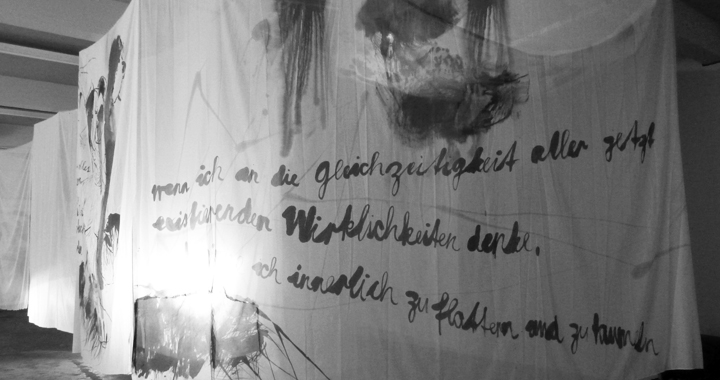 wenn ich an die gleichzeitigkeit aller jetzt
existierenden Wirklichkeiten denke,
ich innerlich zu flattern und zu taumeln